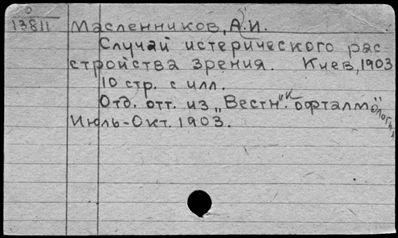 13811 Масленников, А.И.
Случай истерического рас
стройства зрения. Киев, 1903
10 стр. с илл.
Отд. отт. из „Вестн. офталмологіи"
Июль-Окт. 1903.